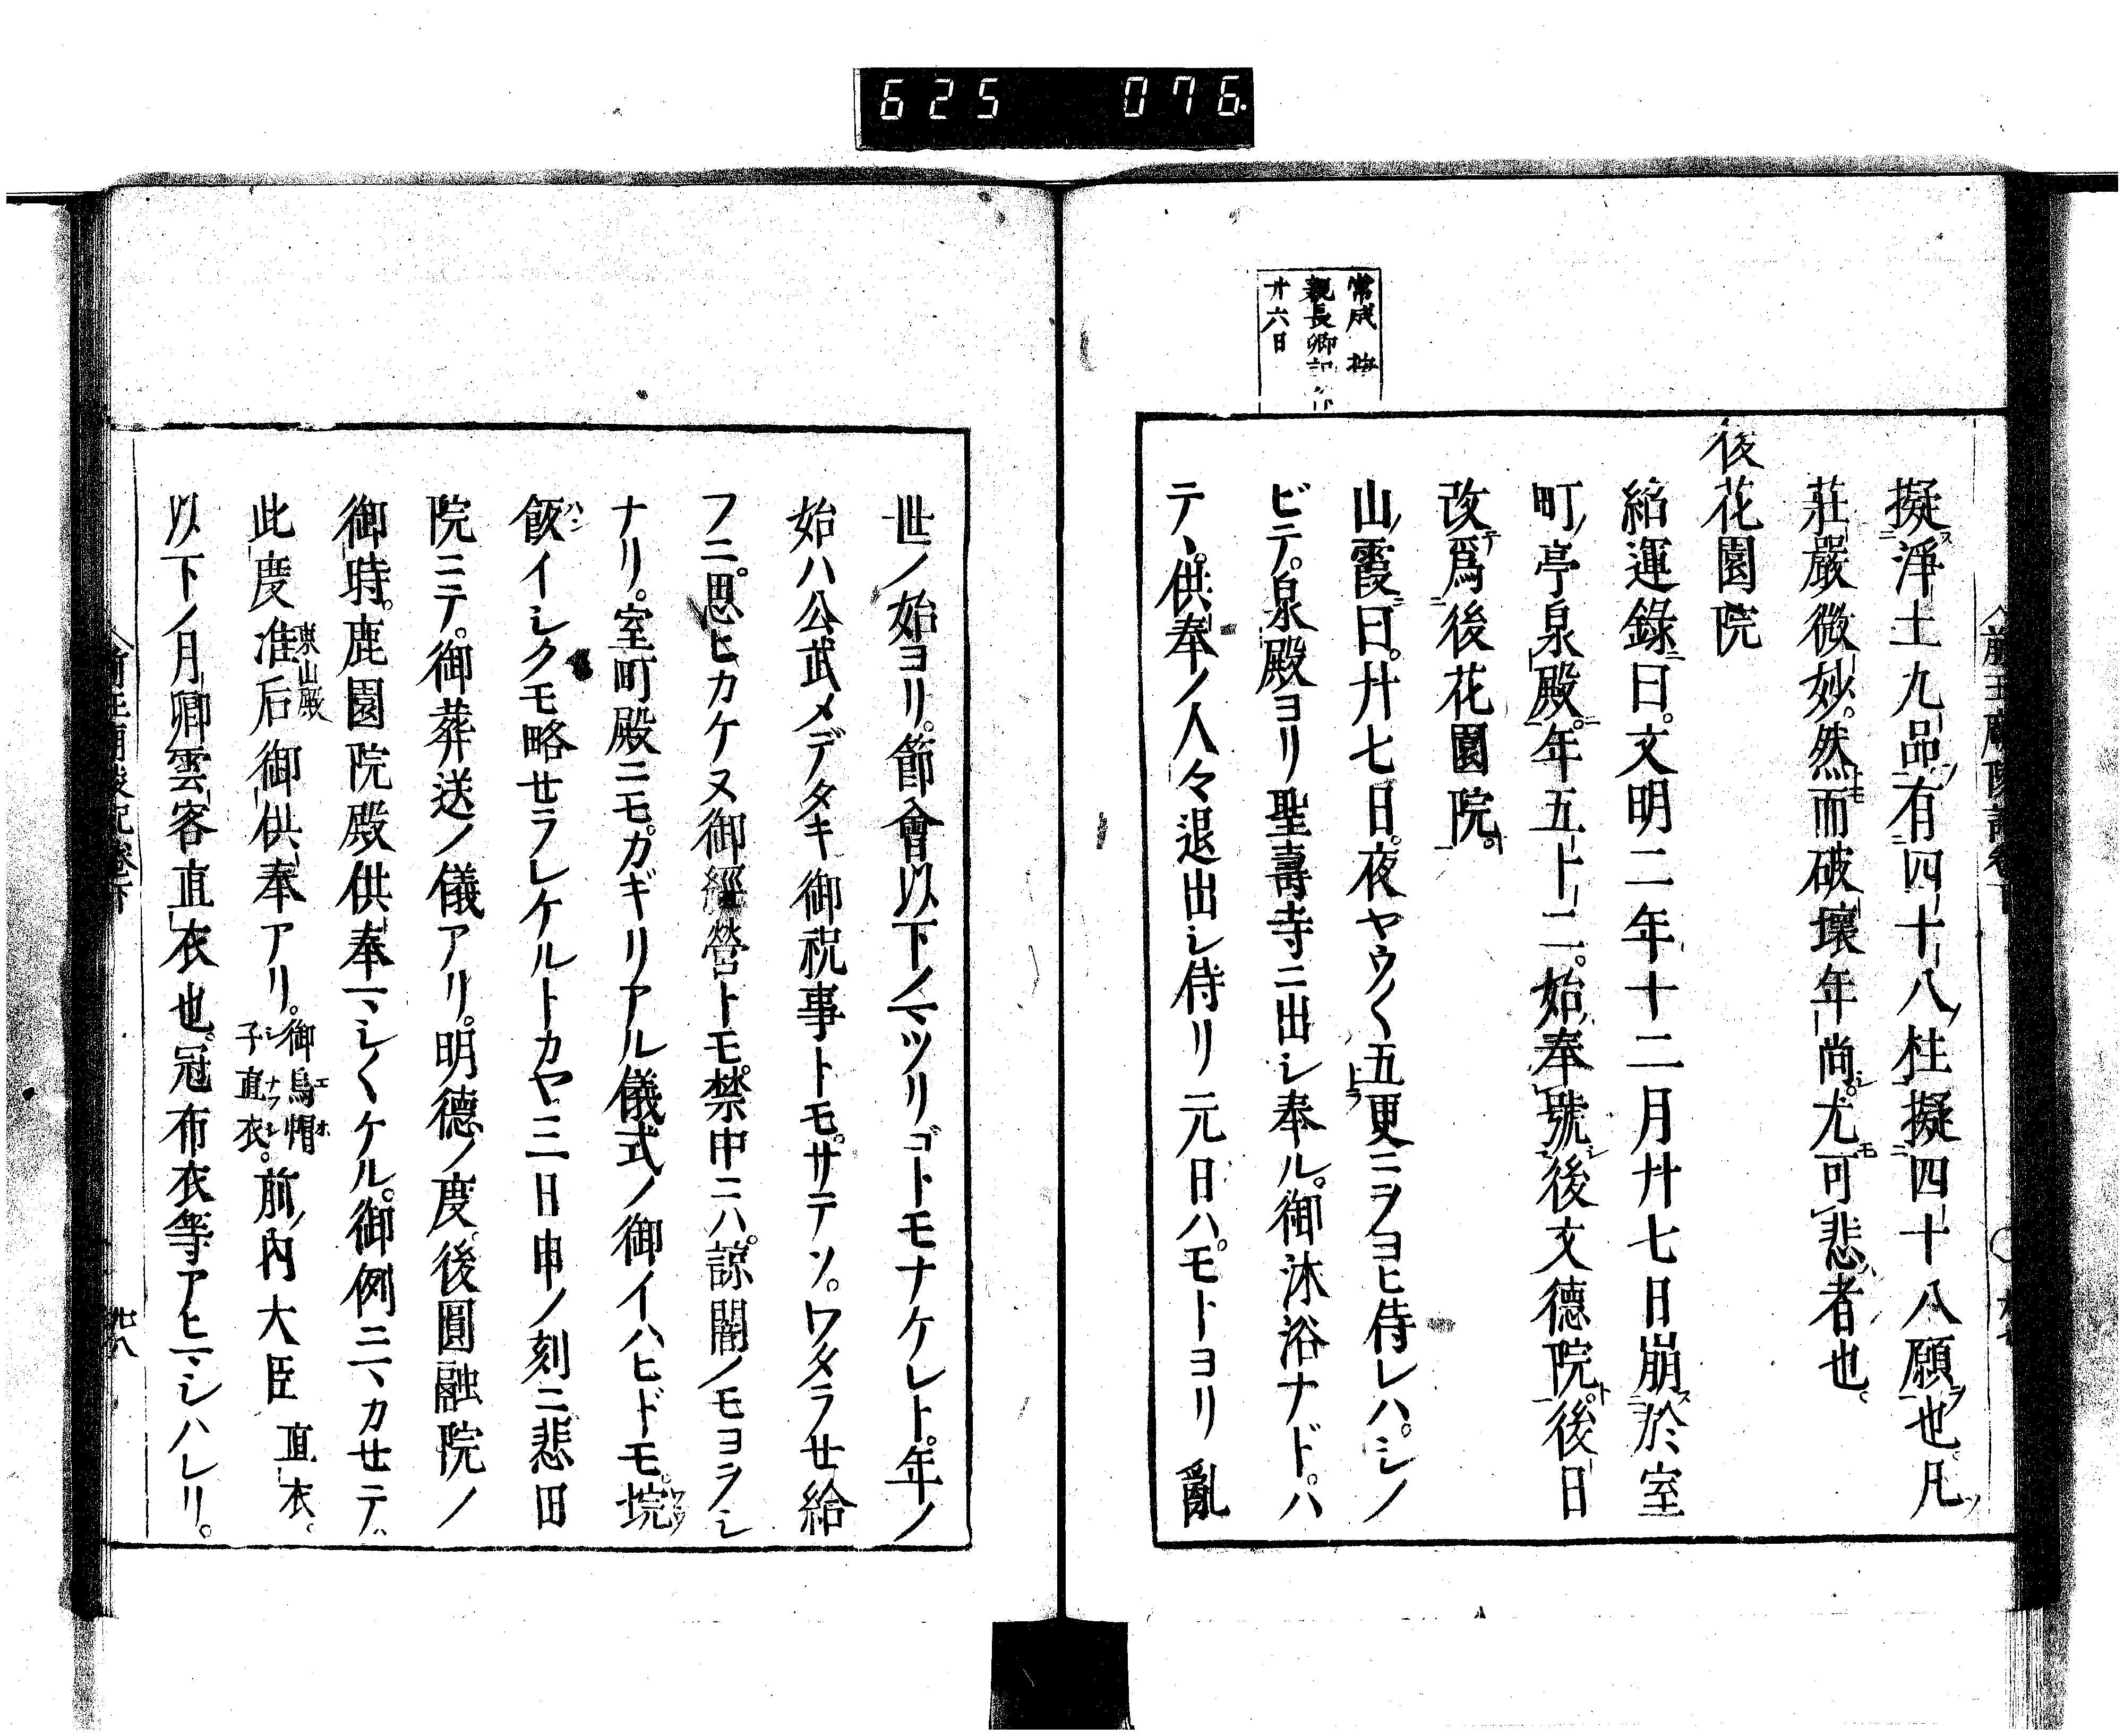 625 076
常成 按
親長卿記作
廿六日
擬淨土九品有四十八柱擬四十八願也凡
莊嚴微妙然而破壞年尚尤可悲者也
後花園院
紹運錄曰文明二年十二月廿七日崩於室
町亭泉殿年五十二始奉號後文德院後日
改爲後花園院
山霞曰廿七日夜ヤウ〱五更ニヲヨヒ侍レハシノ
ビテ泉殿ヨリ聖壽寺ニ出シ奉ル御沐浴ナドハ
テヽ供奉ノ人々退出シ侍リ元日ハモトヨリ亂
世ノ始ヨリ節會以下ノマツリゴトモナケレト年ノ
始ハ公武メデタキ御祝事トモサテソワタラせ給
フニ思ヒカケヌ御經營トモ禁中ニハ諒闇ノモヨヲシ
ナリ室町殿ニモカギリアル儀式ノ御イハヒドモ埦
飯イシクモ略セラレケルトカヤ三日申ノ刻ニ悲田
院ニテ御葬送ノ儀アリ明德ノ度後圓融院ノ
御時鹿園院殿供奉マシ〱ケル御例ニマカせテ
此度准后東山殿御供奉アリ御烏帽子直衣前内大臣直衣
以下ノ月卿雲客直衣也冠布衣等アヒマシハレリ